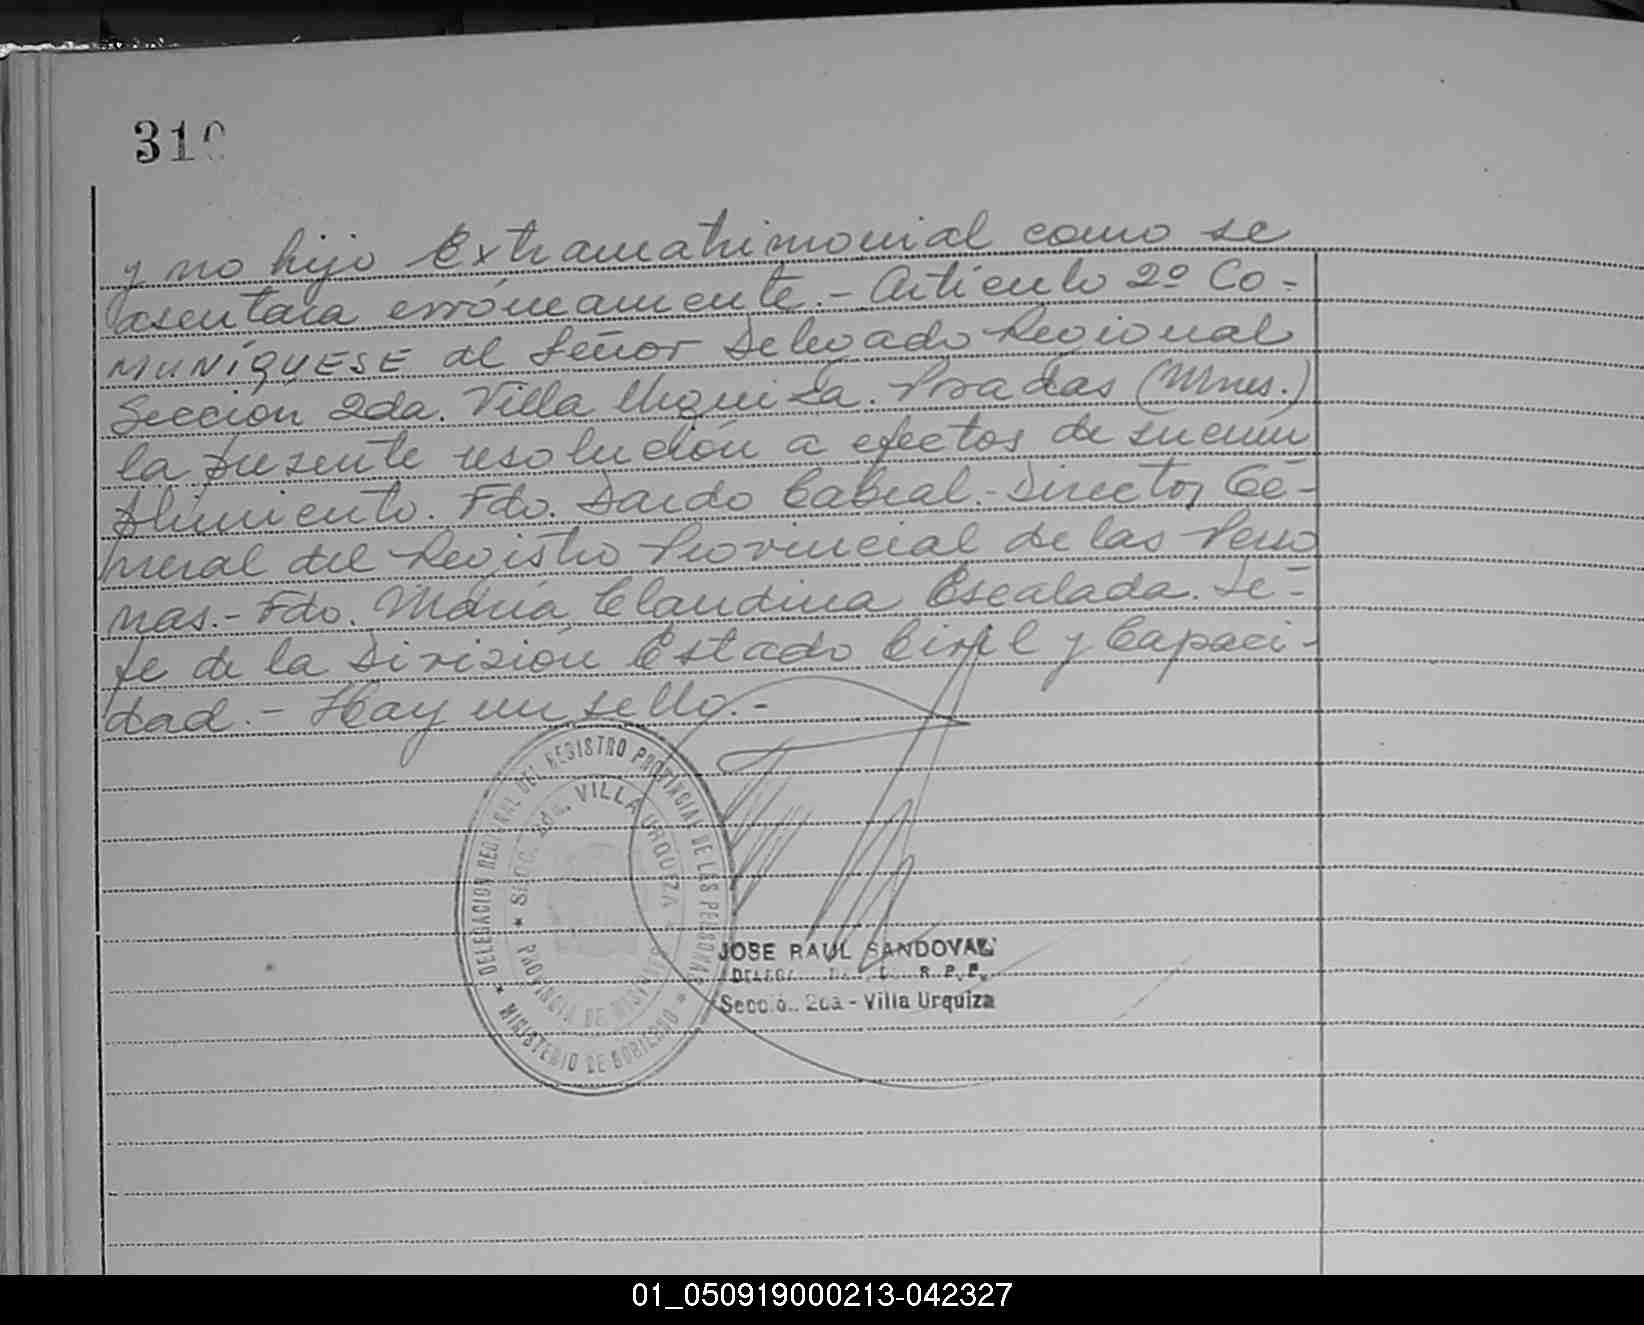 310
y no hijo Extramatrimonial como se
asentara erróneamente.- Artículo 2º Co-
MUNÍQUESE al Señor Delegado Regional
Sección 2da. Villa Urquiza. Posadas (Mnes.)
la presente resolución a efectos de su cum
plimiento. Fdo. Dardo Cabral.- Director Ge-
neral del Registro Provincial de las Perso
nas.- Fdo. María Claudina Escalada. Je-
fe de la División Estado Civil y Capaci-
dad.- Hay un sello.-
DELEGACION REGIONAL DEL REGISTRO PROVINCIAL DE LAS PERSONAS
SECC. 2da. VILLA URQUIZA
PROVINCIA DE MISIONES
MINISTERIO DE GOBIERNO
JOSE RAUL SANDOVAL
R. P. P.
Villa Urquiza
01_050919000213-042327